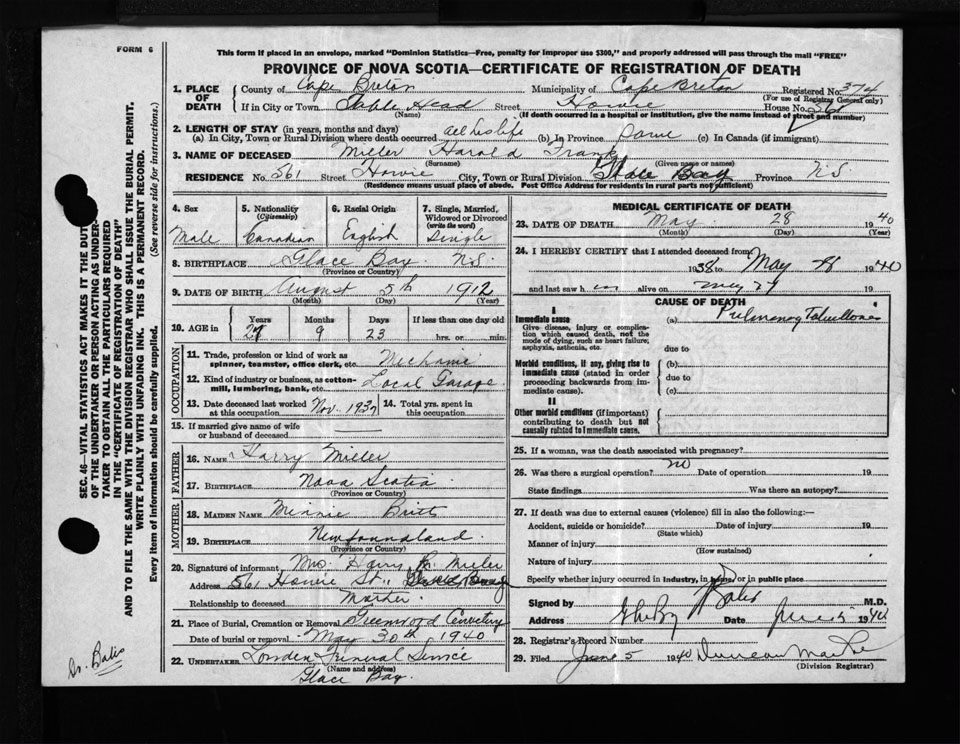 FORM 6
This form if placed in an envelope, marked "Dominion Statistics—Free, penalty for improper use $300," and properly addressed will pass through the mail "FREE"
PROVINCE OF NOVA SCOTIA—CERTIFICATE OF REGISTRATION OF DEATH
1. PLACE OF DEATH
County of Cape Breton Municipality of Cape Breton Registered No. 374
(For use of Registrar General only)
If in City or Town Head Street Howie House No. 561
(Name) (If death occurred in a hospital or institution, give the name instead of street and number)
2. LENGTH OF STAY (in years, months and days)
(a) In City, Town or Rural Division where death occurred all his life (b) In Province same (c) In Canada (if immigrant)
3. NAME OF DECEASED Miller Harold Frank
(Surname) (Given name or names)
RESIDENCE No. 561 Street Howie City, Town or Rural Division Glace Bay Province N.S.
(Residence means usual place of abode. Post Office Address for residents in rural parts not sufficient)
4. Sex Male
5. Nationality (Citizenship) Canadian
6. Racial Origin English
7. Single, Married, Widowed or Divorced (write the word) Single
8. BIRTHPLACE Glace Bay N.S.
(Province or Country)
9. DATE OF BIRTH August 5th 1912
(Month) (Day) (Year)
10. AGE in Years Months Days If less than one day old
27 9 23 hrs. or min.
OCCUPATION
11. Trade, profession or kind of work as spinner, teamster, office clerk, etc. Mechanic
12. Kind of industry or business, as cotton-mill, lumbering, bank, etc. Local Garage
13. Date deceased last worked at this occupation Nov. 1937 14. Total yrs. spent in this occupation
15. If married give name of wife or husband of deceased
FATHER
16. NAME Harry Miller
17. BIRTHPLACE Nova Scotia
(Province or Country)
MOTHER
18. MAIDEN NAME Minnie Britt
19. BIRTHPLACE Newfoundland
(Province or Country)
20. Signature of informant Mrs. Harry Miller
Address 561 Howie St., Glace Bay
Relationship to deceased Mother
21. Place of Burial, Cremation or Removal Greenwood Cemetery
Date of burial or removal May 30th 1940
22. UNDERTAKER Funeral Service
(Name and address)
Glace Bay.
MEDICAL CERTIFICATE OF DEATH
23. DATE OF DEATH May 28 1940
(Month) (Day) (Year)
24. I HEREBY CERTIFY that I attended deceased from
1938 to May 1940
and last saw him alive on May 27 19
CAUSE OF DEATH
I
Immediate cause (a) Pulmonary Tuberculosis
Give disease, injury or complication which caused death, not the mode of dying, such as heart failure, asphyxia, asthenia, etc.
due to
Morbid conditions, if any, giving rise to immediate cause (stated in order proceeding backwards from immediate cause).
(b)
due to
(c)
II
Other morbid conditions (if important) contributing to death but not causally related to immediate cause.
25. If a woman, was the death associated with pregnancy?
26. Was there a surgical operation? no Date of operation 19
State findings Was there an autopsy?
27. If death was due to external causes (violence) fill in also the following:—
Accident, suicide or homicide? Date of injury 19
(State which)
Manner of injury
(How sustained)
Nature of injury
Specify whether injury occurred in industry, in home, or in public place
Signed by Balis M.D.
Address Date 1940
28. Registrar's Record Number
29. Filed June 5 1940 Duncan
(Division Registrar)
SEC. 46—VITAL STATISTICS ACT MAKES IT THE DUTY
OF THE UNDERTAKER OR PERSON ACTING AS UNDER-
TAKER TO OBTAIN ALL THE PARTICULARS REQUIRED
IN THE "CERTIFICATE OF REGISTRATION OF DEATH"
AND TO FILE THE SAME WITH THE DIVISION REGISTRAR WHO SHALL ISSUE THE BURIAL PERMIT.
WRITE PLAINLY WITH UNFADING INK. THIS IS A PERMANENT RECORD.
Every item of information should be carefully supplied. (See reverse side for instructions.)
Dr. Balis